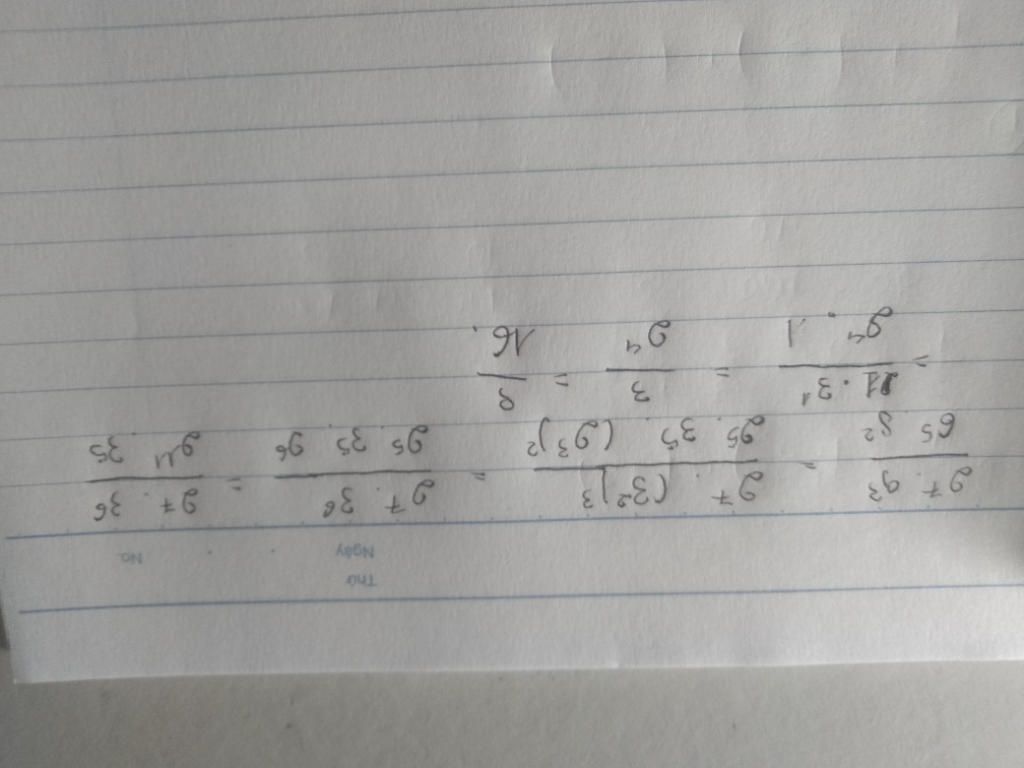 Thứ
Ngày No.
\frac{2^7 . 9^3}{6^5 . 8^2} = \frac{2^7 . (3^2)^3}{2^5 . 3^5 . (2^3)^2} = \frac{2^7 . 3^6}{2^5 . 3^5 . 2^6} = \frac{2^7 . 3^6}{2^{11} . 3^5}
= \frac{1 . 3^1}{2^4 . 1} = \frac{3}{2^4} = \frac{3}{16}.